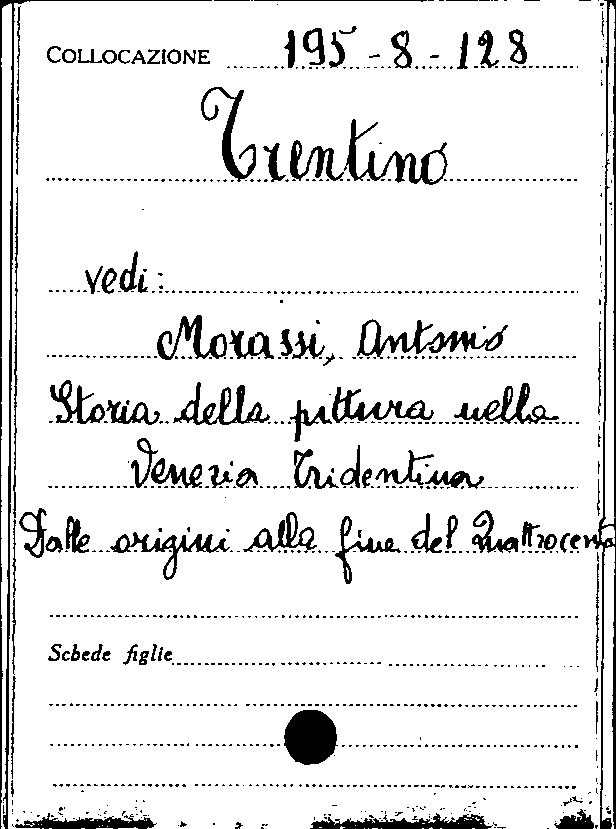 COLLOCAZIONE 195-8-128
Trentino
vedi:
Morassi, Antonio
Storia della pittura nella
Venezia Tridentina
Dalle origini alla fine del Quattrocento
Schede figlie